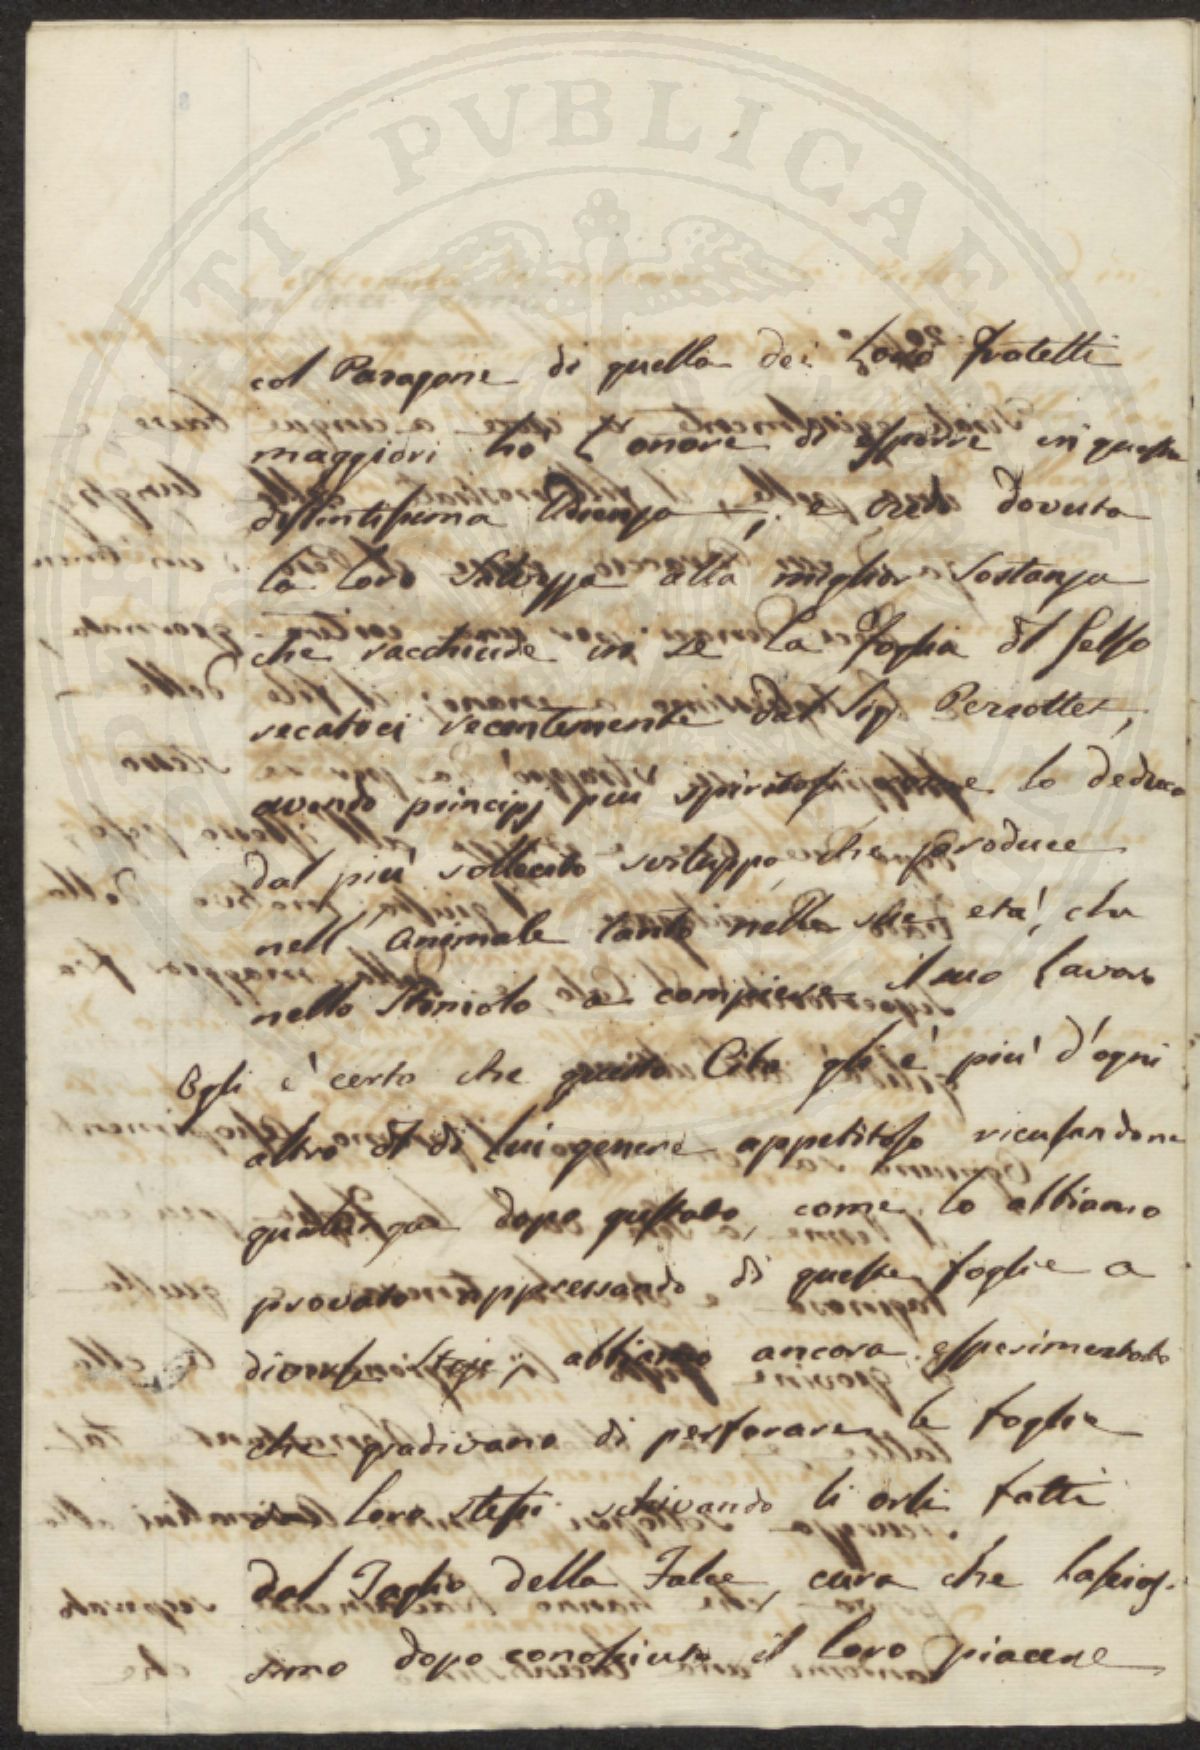 PVTATI PVBLICAE
col Paragone di quella dei Loro fratelli
maggiori ho l'onore di esporre in questa
distintissima Adunanza, e credo dovuta
la loro salvezza alla miglior sostanza
che racchiude in se la foglia del Gelso
recatoci recentemente dal Sig. Perrottet,
avendo principj piu spiritosi come lo deduco
dal più sollecito sviluppo, che produce
nell'animale tanto nelle sue età, che
nello stimolo a compiere il suo lavoro
Egli è certo che questo Cibo gli è più d'ogni
altro del di lui genere appetitoso ricusandone
qualunque dopo gustato, come lo abbiamo
provato appressando di queste foglie a
diverse stese, abbiamo ancora esperimentato
che gradivano di perforare le foglie
da loro stessi schivando li orli fatti
dal Taglio della Falce, cura che lascias-
simo dopo conosciuto il loro piacere